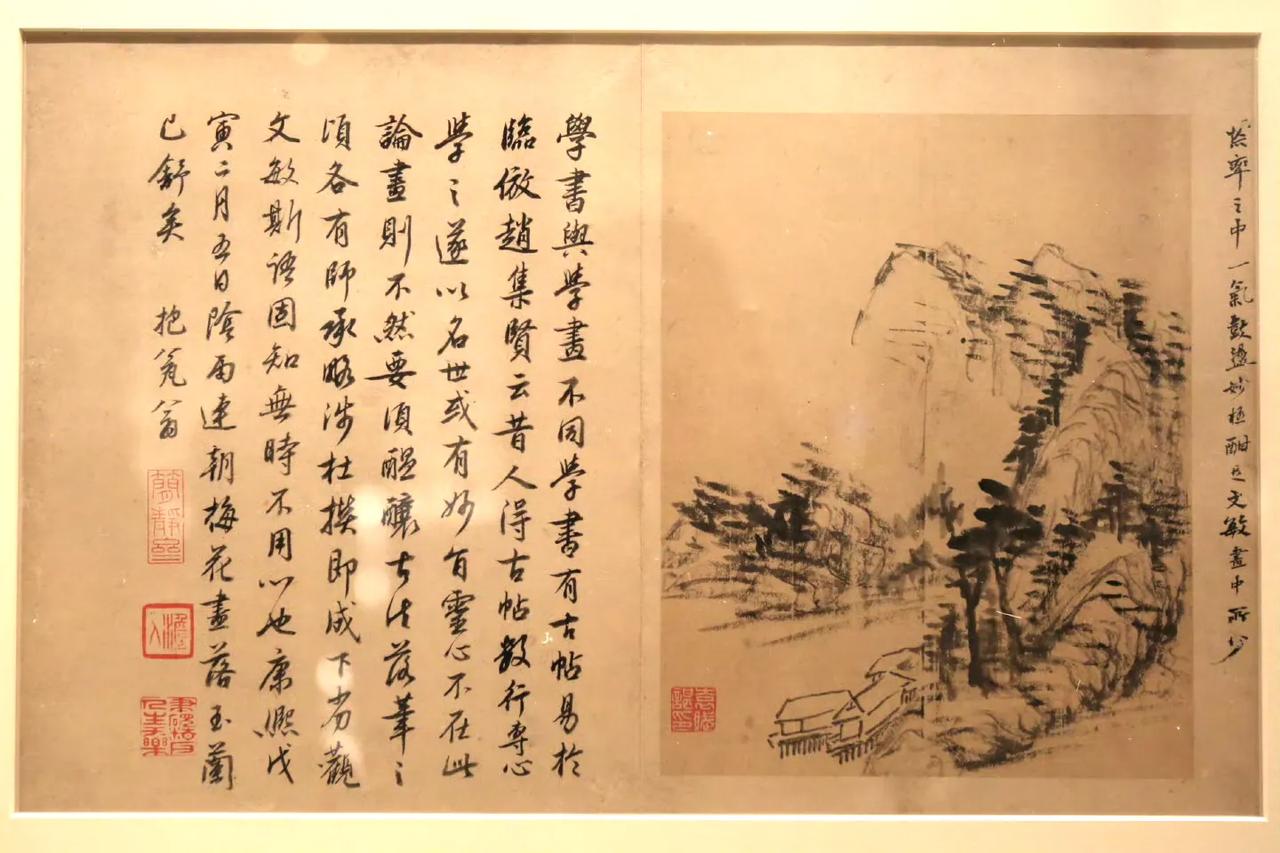 率之中一氣鼓盪妙極酣邑文敏畫中所少
學書與學畫不同學書有古帖易於
臨倣趙集賢云昔人得古帖數行專心
學之遂以名世或有妙有靈心不在此
論畫則不然要須醞釀古法落筆之
頃各有師承略涉杜撰即成下劣觀
文敏斯語固知無時不用心也康熙戊
寅二月五日陰雨連朝梅花盡落玉蘭
已舒矣 抱瓮翁